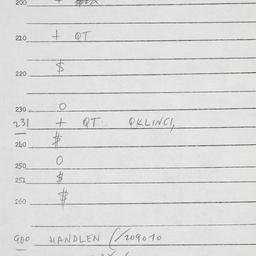 200 +
210 + QT
$
220
230 0
231 + QT QKLINCI,
240 $
250 0
252 $
260 $
900 HANDLEN (/209010